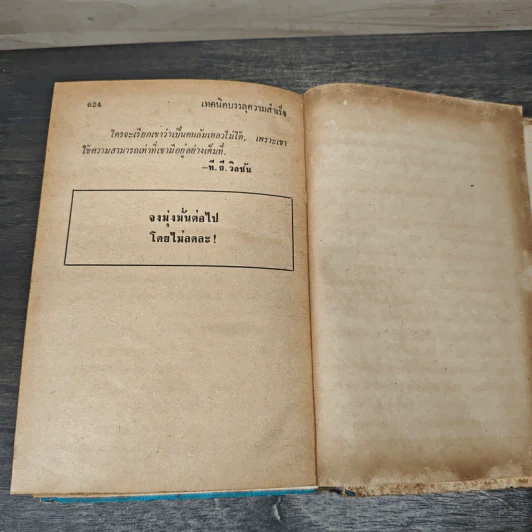 624
เทคนิคบรรลุความสำเร็จ
ใครจะเรียกเขาว่าเป็นคนล้มเหลวไม่ได้, เพราะเขา
ใช้ความสามารถเท่าที่เขามีอยู่อย่างเต็มที่.
—ที. ถี. วิลซัน
จงมุ่งมั่นต่อไป
โดยไม่ลดละ!